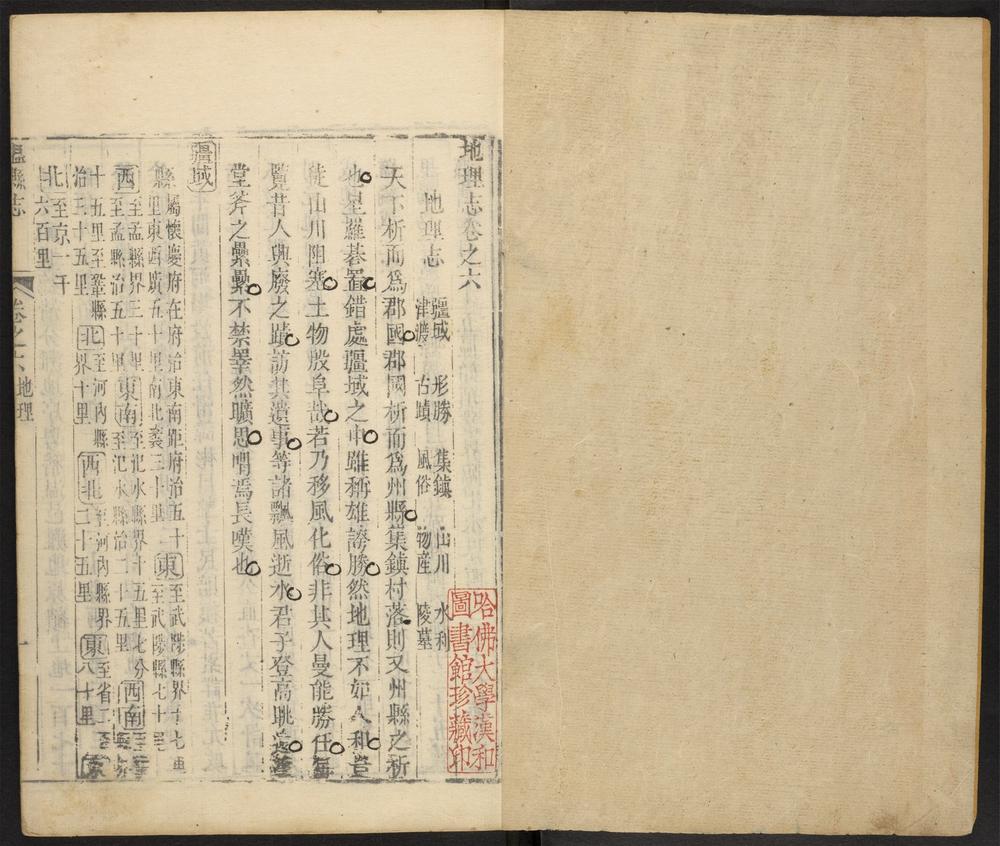 地理志卷之六
地理志
疆域 形勝 集鎮 山川 水利
津渡 古蹟 風俗 物産 陵墓
天下析而爲郡國郡國析而爲州縣集鎮村落則又州縣之析
地星羅碁置錯處疆域之中雖稱雄誇勝然地理不如人和豈
徒山川阻塞土物殷阜哉若乃移風化俗非其人曼能勝任每
覽昔人興廢之蹟訪其遺事等諸飄風逝水君子登高眺遠
堂斧之纍纍不禁睪然曠思喟焉長嘆也
疆域
屬懷慶府在府治東南距府治五十
里東西廣五十里南北袤三十里
東
至武陟縣界十七
至武陟縣七十里
西
至孟縣界三十里
至孟縣治五十里
東南
至汜水縣界十五里七分
至汜水縣治二十五里
西南
十五里至鞏縣
治三十五里
北
至河內縣
界十里
西北
至河內縣界
二十五里
東
至省二
八十里
北
至京一千
六百里
溫縣志
卷之六
地理
一
哈佛大學漢和
圖書館珍藏印